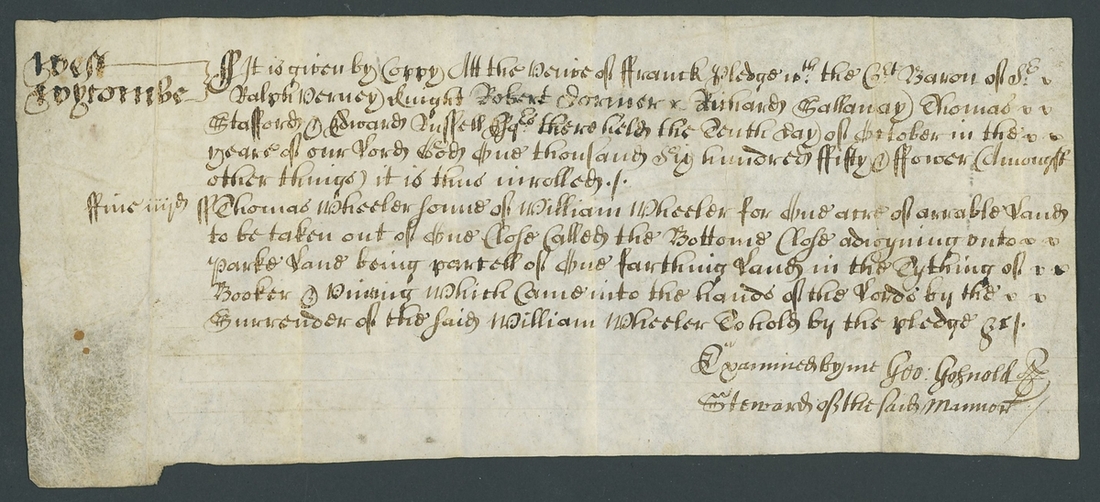 West
Wycombe
It is given by Coppy Att the Veiwe of ffranck Pledge wth the Crt Baron of Sr
Ralph Verney Knight Robert Dormer Richard Gallaway Thomas
Stafford & Edward Russell Esqrs there held the Tenth day of October in the
yeare of our Lord God One thousand Six hundred ffifty & ffower (Amongst
other things) it is thus inrolled ./.
ffine iiijd ss Thomas Wheeler sonne of William Wheeler for One acre of arrable Land
to be taken out of One Close Called the Bottome Close adioyning unto
Parke Lane being parcell of One farthing Land in the Tything of
Booker & Which Came into the hands of the Lords by the
Surrender of the said William Wheeler To hold by the pledge &c ./.
Examined by me Geo: Gosnold
Steward of the said Mannor